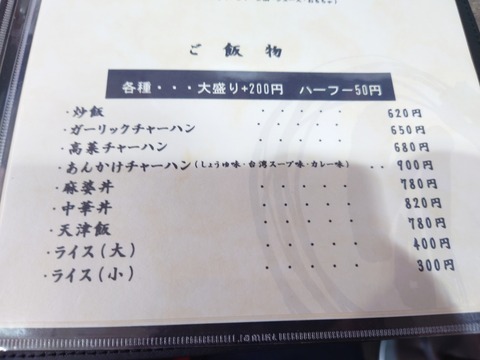 ご飯物
各種・・・大盛り+200円 ハーフー50円
・炒飯 ・・・・・ 620円
・ガーリックチャーハン ・・・・・ 650円
・高菜チャーハン ・・・・・ 680円
・あんかけチャーハン(しょうゆ味・台湾スープ味・カレー味) ・・ 900円
・麻婆丼 ・・・・・ 780円
・中華丼 ・・・・・ 820円
・天津飯 ・・・・・ 780円
・ライス(大) ・・・・・ 400円
・ライス(小) ・・・・・ 300円